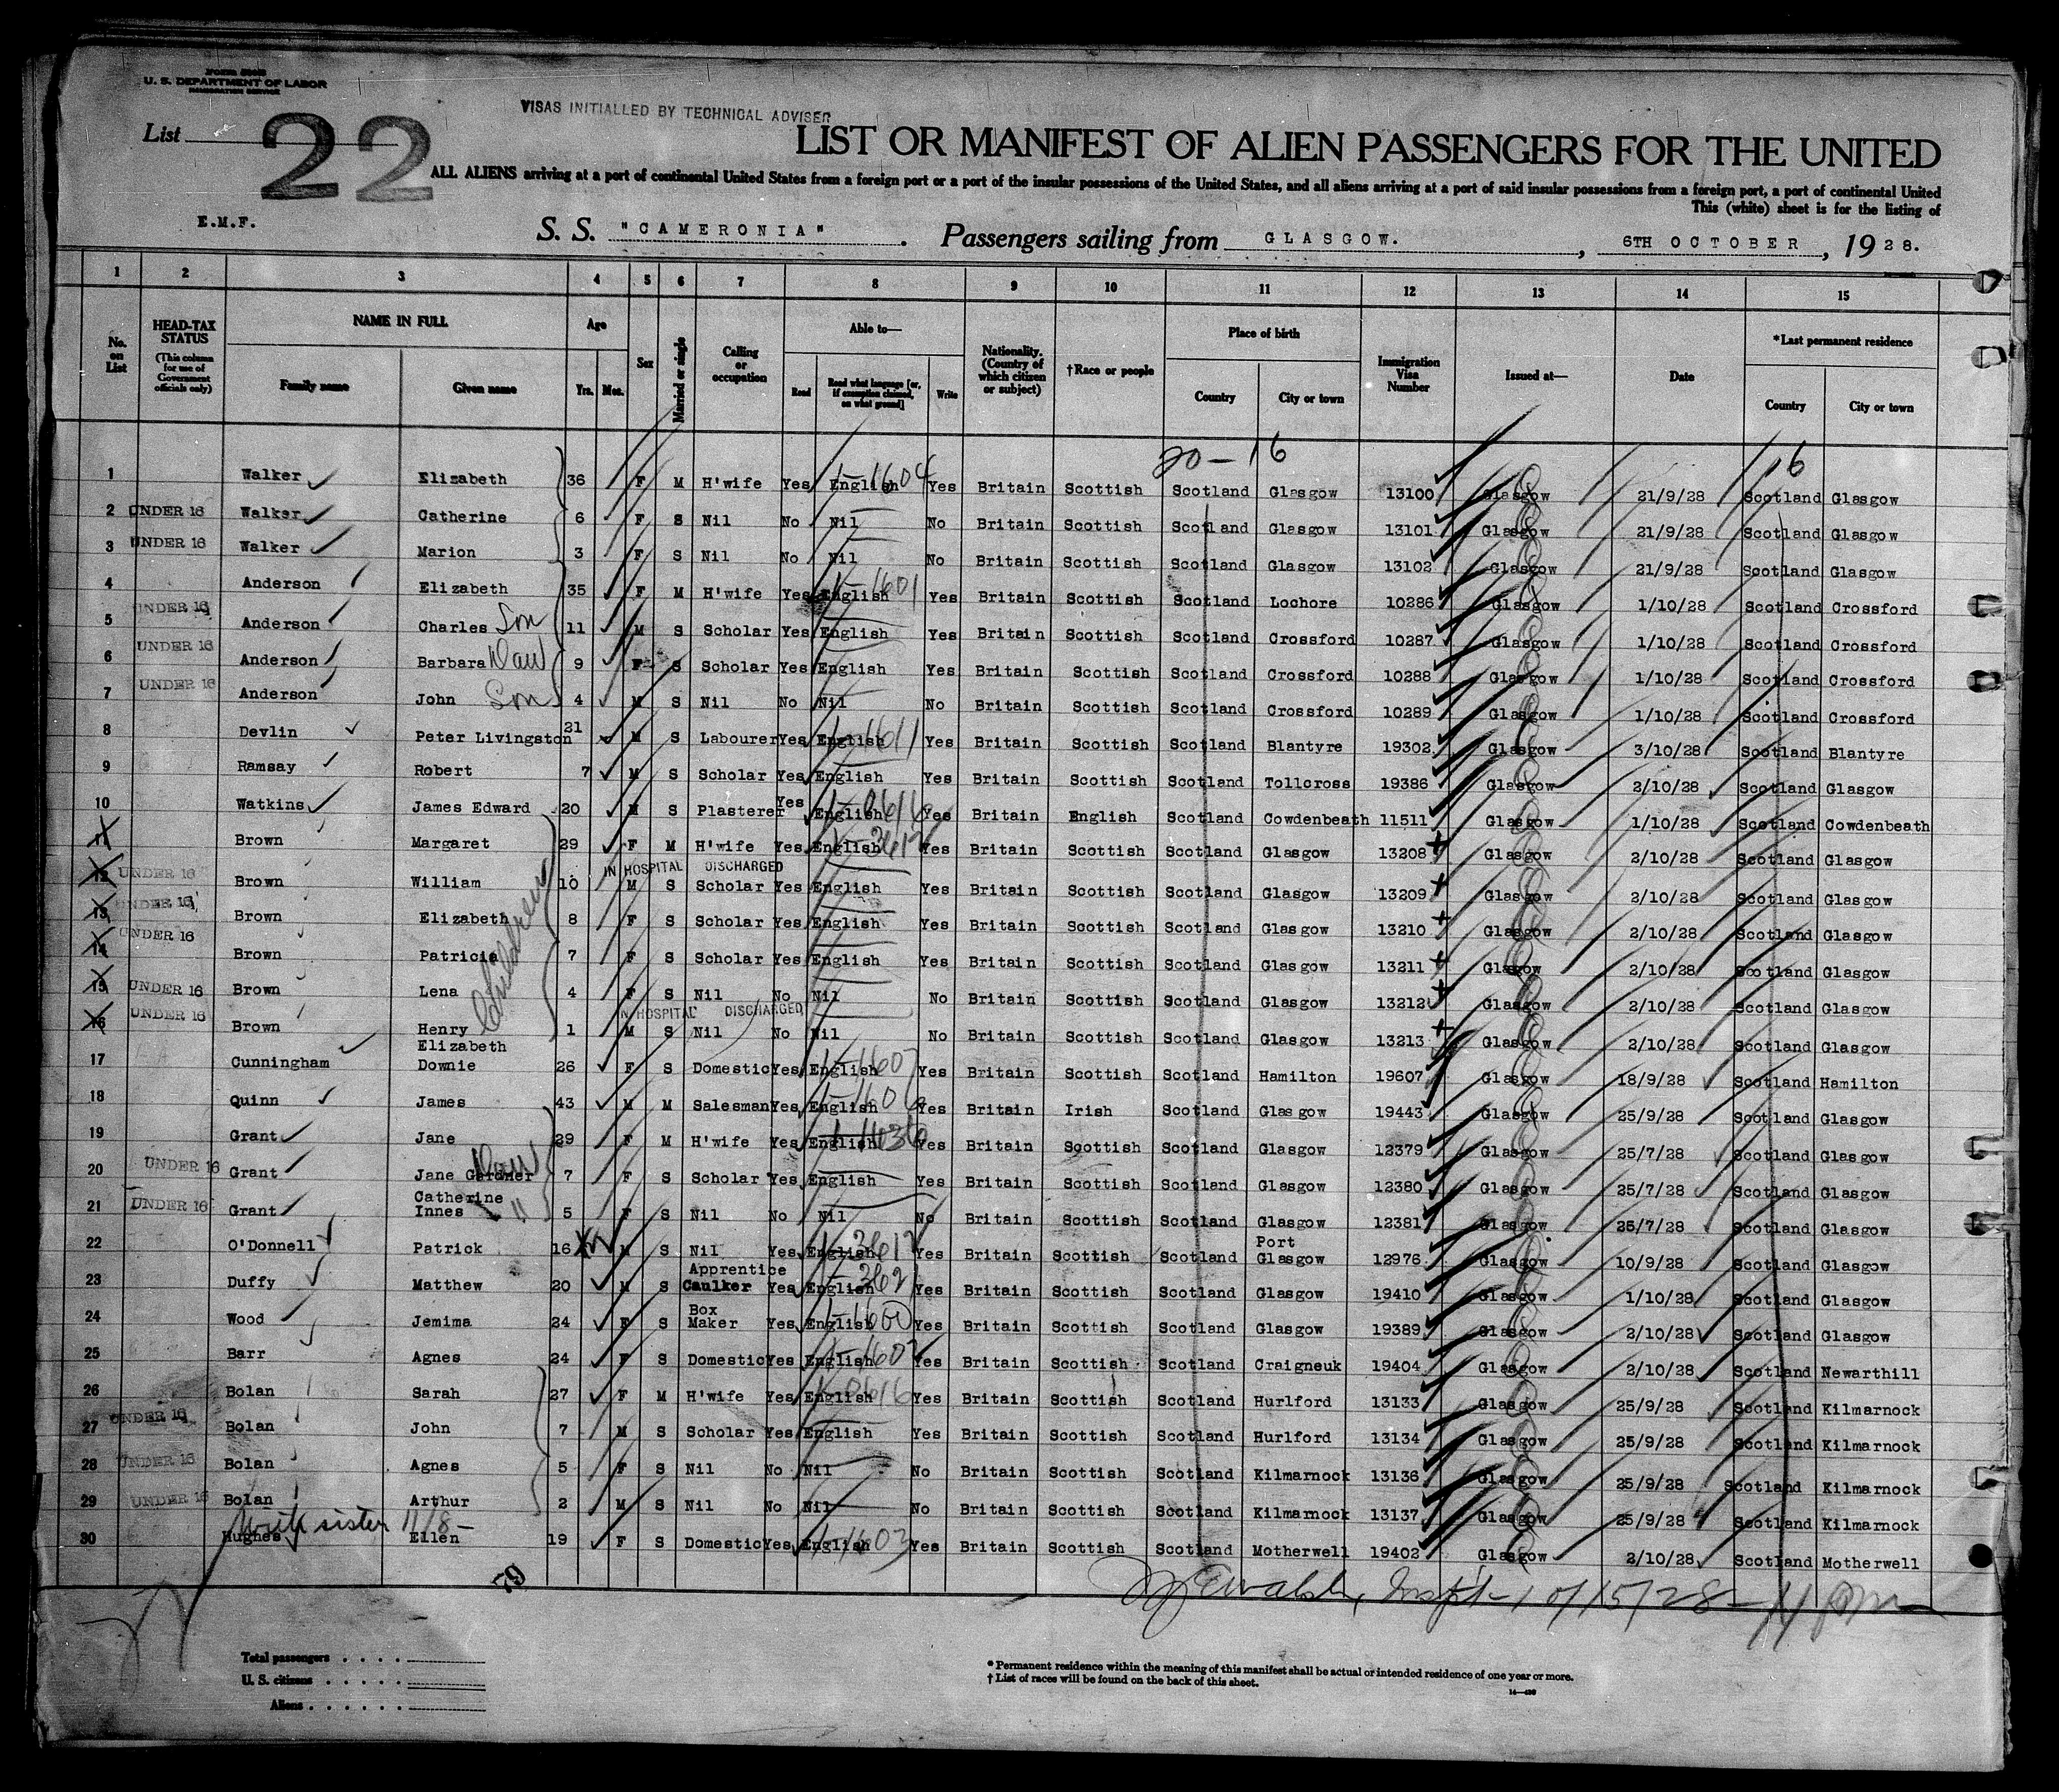 U. S. DEPARTMENT OF LABOR
VISAS INITIALLED BY TECHNICAL ADVISER
List 22
LIST OR MANIFEST OF ALIEN PASSENGERS FOR THE UNITED
ALL ALIENS arriving at a port of continental United States from a foreign port or a port of the insular possessions of the United States, and all aliens arriving at a port of said insular possessions from a foreign port, a port of continental United
This (white) sheet is for the listing of
E.M.F.
S. S. "CAMERONIA". Passengers sailing from GLASGOW., 6TH OCTOBER, 1928.
1 2 3 4 5 6 7 8 9 10 11 12 13 14 15
No. on List
HEAD-TAX STATUS (This column for use of Government officials only)
NAME IN FULL Family name Given name
Age Yrs. Mos.
Sex
Married or single
Calling or occupation
Able to— Read Read what language [or, if exemption claimed, on what ground] Write
Nationality. (Country of which citizen or subject)
†Race or people
Place of birth Country City or town
Immigration Visa Number
Issued at—
Date
*Last permanent residence Country City or town
20-16 16
1 Walker Elizabeth 36 F M H'wife Yes English 1-1604 Yes Britain Scottish Scotland Glasgow 13100 Glasgow 21/9/28 Scotland Glasgow
2 UNDER 16 Walker Catherine 6 F S Nil No Nil No Britain Scottish Scotland Glasgow 13101 Glasgow 21/9/28 Scotland Glasgow
3 UNDER 16 Walker Marion 3 F S Nil No Nil No Britain Scottish Scotland Glasgow 13102 Glasgow 21/9/28 Scotland Glasgow
4 Anderson Elizabeth 35 F M H'wife Yes English 1-1601 Yes Britain Scottish Scotland Lochore 10286 Glasgow 1/10/28 Scotland Crossford
5 UNDER 16 Anderson Charles Son 11 M S Scholar Yes English Yes Britain Scottish Scotland Crossford 10287 Glasgow 1/10/28 Scotland Crossford
6 UNDER 16 Anderson Barbara Dau 9 F S Scholar Yes English Yes Britain Scottish Scotland Crossford 10288 Glasgow 1/10/28 Scotland Crossford
7 UNDER 16 Anderson John Son 4 M S Nil No Nil No Britain Scottish Scotland Crossford 10289 Glasgow 1/10/28 Scotland Crossford
8 Devlin Peter Livingston 21 M S Labourer Yes English 1-1611 Yes Britain Scottish Scotland Blantyre 19302 Glasgow 3/10/28 Scotland Blantyre
9 Ramsay Robert 7 M S Scholar Yes English Yes Britain Scottish Scotland Tollcross 19386 Glasgow 2/10/28 Scotland Glasgow
10 Watkins James Edward 20 M S Plasterer Yes English Yes Britain English Scotland Cowdenbeath 11511 Glasgow 1/10/28 Scotland Cowdenbeath
11 Brown Margaret 29 F M H'wife Yes English Yes Britain Scottish Scotland Glasgow 13208 Glasgow 2/10/28 Scotland Glasgow
IN HOSPITAL DISCHARGED
12 UNDER 16 Brown William 10 M S Scholar Yes English Yes Britain Scottish Scotland Glasgow 13209 Glasgow 2/10/28 Scotland Glasgow
13 UNDER 16 Brown Elizabeth 8 F S Scholar Yes English Yes Britain Scottish Scotland Glasgow 13210 Glasgow 2/10/28 Scotland Glasgow
Children
14 UNDER 16 Brown Patricia 7 F S Scholar Yes English Yes Britain Scottish Scotland Glasgow 13211 Glasgow 2/10/28 Scotland Glasgow
15 UNDER 16 Brown Lena 4 F S Nil No Nil No Britain Scottish Scotland Glasgow 13212 Glasgow 2/10/28 Scotland Glasgow
IN HOSPITAL DISCHARGED
16 UNDER 16 Brown Henry 1 M S Nil No Nil No Britain Scottish Scotland Glasgow 13213 Glasgow 2/10/28 Scotland Glasgow
17 Cunningham Elizabeth Downie 26 F S Domestic Yes English 1-1607 Yes Britain Scottish Scotland Hamilton 19607 Glasgow 18/9/28 Scotland Hamilton
18 Quinn James 43 M M Salesman Yes English Yes Britain Irish Scotland Glasgow 19443 Glasgow 25/9/28 Scotland Glasgow
19 Grant Jane 29 F M H'wife Yes English Yes Britain Scottish Scotland Glasgow 12379 Glasgow 25/7/28 Scotland Glasgow
20 UNDER 16 Grant Jane Gardner Dau 7 F S Scholar Yes English Yes Britain Scottish Scotland Glasgow 12380 Glasgow 25/7/28 Scotland Glasgow
21 UNDER 16 Grant Catherine Innes " 5 F S Nil No Nil No Britain Scottish Scotland Glasgow 12381 Glasgow 25/7/28 Scotland Glasgow
22 O'Donnell Patrick 16 M S Nil Yes English Yes Britain Scottish Scotland Port Glasgow 12976 Glasgow 10/9/28 Scotland Glasgow
23 Duffy Matthew 20 M S Apprentice Caulker Yes English Yes Britain Scottish Scotland Glasgow 19410 Glasgow 1/10/28 Scotland Glasgow
24 Wood Jemima 24 F S Box Maker Yes English 1-1600 Yes Britain Scottish Scotland Glasgow 19389 Glasgow 2/10/28 Scotland Glasgow
25 Barr Agnes 24 F S Domestic Yes English 1-1602 Yes Britain Scottish Scotland Craigneuk 19404 Glasgow 2/10/28 Scotland Newarthill
26 Bolan Sarah 27 F M H'wife Yes English Yes Britain Scottish Scotland Hurlford 13133 Glasgow 25/9/28 Scotland Kilmarnock
27 UNDER 16 Bolan John 7 M S Scholar Yes English Yes Britain Scottish Scotland Hurlford 13134 Glasgow 25/9/28 Scotland Kilmarnock
28 UNDER 16 Bolan Agnes 5 F S Nil No Nil No Britain Scottish Scotland Kilmarnock 13136 Glasgow 25/9/28 Scotland Kilmarnock
29 UNDER 16 Bolan Arthur 2 M S Nil No Nil No Britain Scottish Scotland Kilmarnock 13137 Glasgow 25/9/28 Scotland Kilmarnock
With sister 11/8-
30 Hughes Ellen 19 F S Domestic Yes English 1-1603 Yes Britain Scottish Scotland Motherwell 19402 Glasgow 2/10/28 Scotland Motherwell
79
Walsh, Inspt- 10/15/28-
Total passengers
U. S. citizens
Aliens
*Permanent residence within the meaning of this manifest shall be actual or intended residence of one year or more.
†List of races will be found on the back of this sheet.